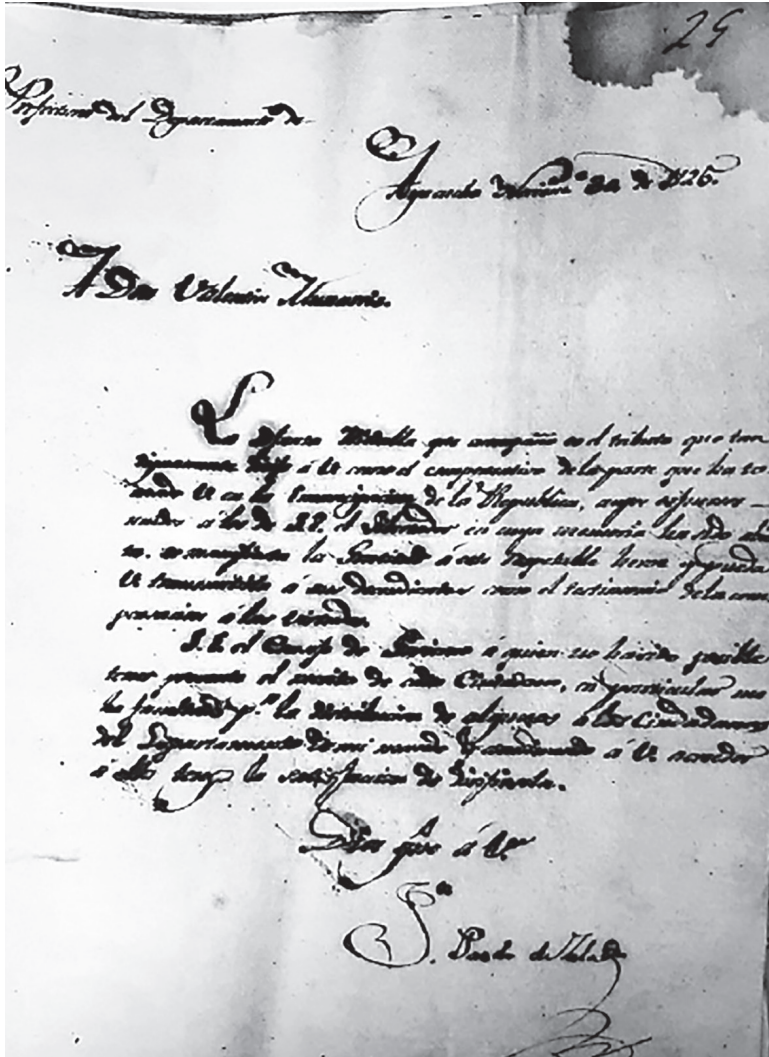 25
Prefectura del Departamento de
Ayacucho Noviembre 24 de 1826.
A Don Valentin
La Medalla que acompaño es el tributo que tan
dignamente á U. como el comprovativo de la parte que ha to
mado U. en la Emancipacion de la Republica, cuyos esfuerzos
unidos á los de S.E. el Libertador en cuya memoria ha sido
se manifiesta la Gratitud á este respetable heroe y pueda
U. transmitirla á sus decendientes como el testimonio de la
á las virtudes.
S.E. el Consejo de Gobierno á quien no ha sido posible
tener presente el merito de cada Ciudadano, en particular me
ha facultado p.a la distribucion de algunas á los Ciudadanos
del Departamento de mi mando y considerando á U. acreedor
á ella tengo la satisfaccion de dirijirsela.
Dios gue á U.
Pardo de Zela